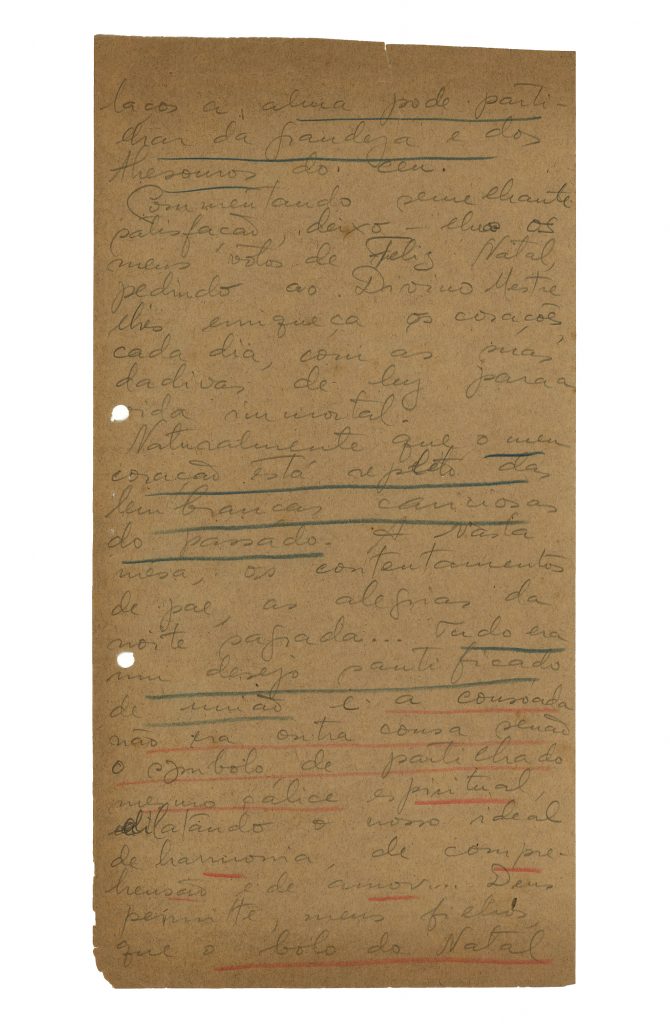 laços a alma pode parti-
lhar da grandeza e dos
thesouros do ceu.
Commentando semelhante
satisfação, deixo-lhes os
meus votos de Feliz Natal,
pedindo ao Divino Mestre
lhes enriqueça os corações,
cada dia, com as suas
dadivas de luz para a
vida immortal.
Naturalmente que o meu
coração está repleto das
lembranças cariciosas
do passado. A vasta
mesa, os contentamentos
de pae, as alegrias da
noite sagrada... Tudo era
um desejo santificado
de união e a consoada
não era outra cousa senão
o symbolo de partilhado
mesmo cálice espiritual,
dilatando o nosso ideal
de harmonia, de compre-
hensão e de amor... Deus
permitte, meus filhos,
que o bolo do Natal